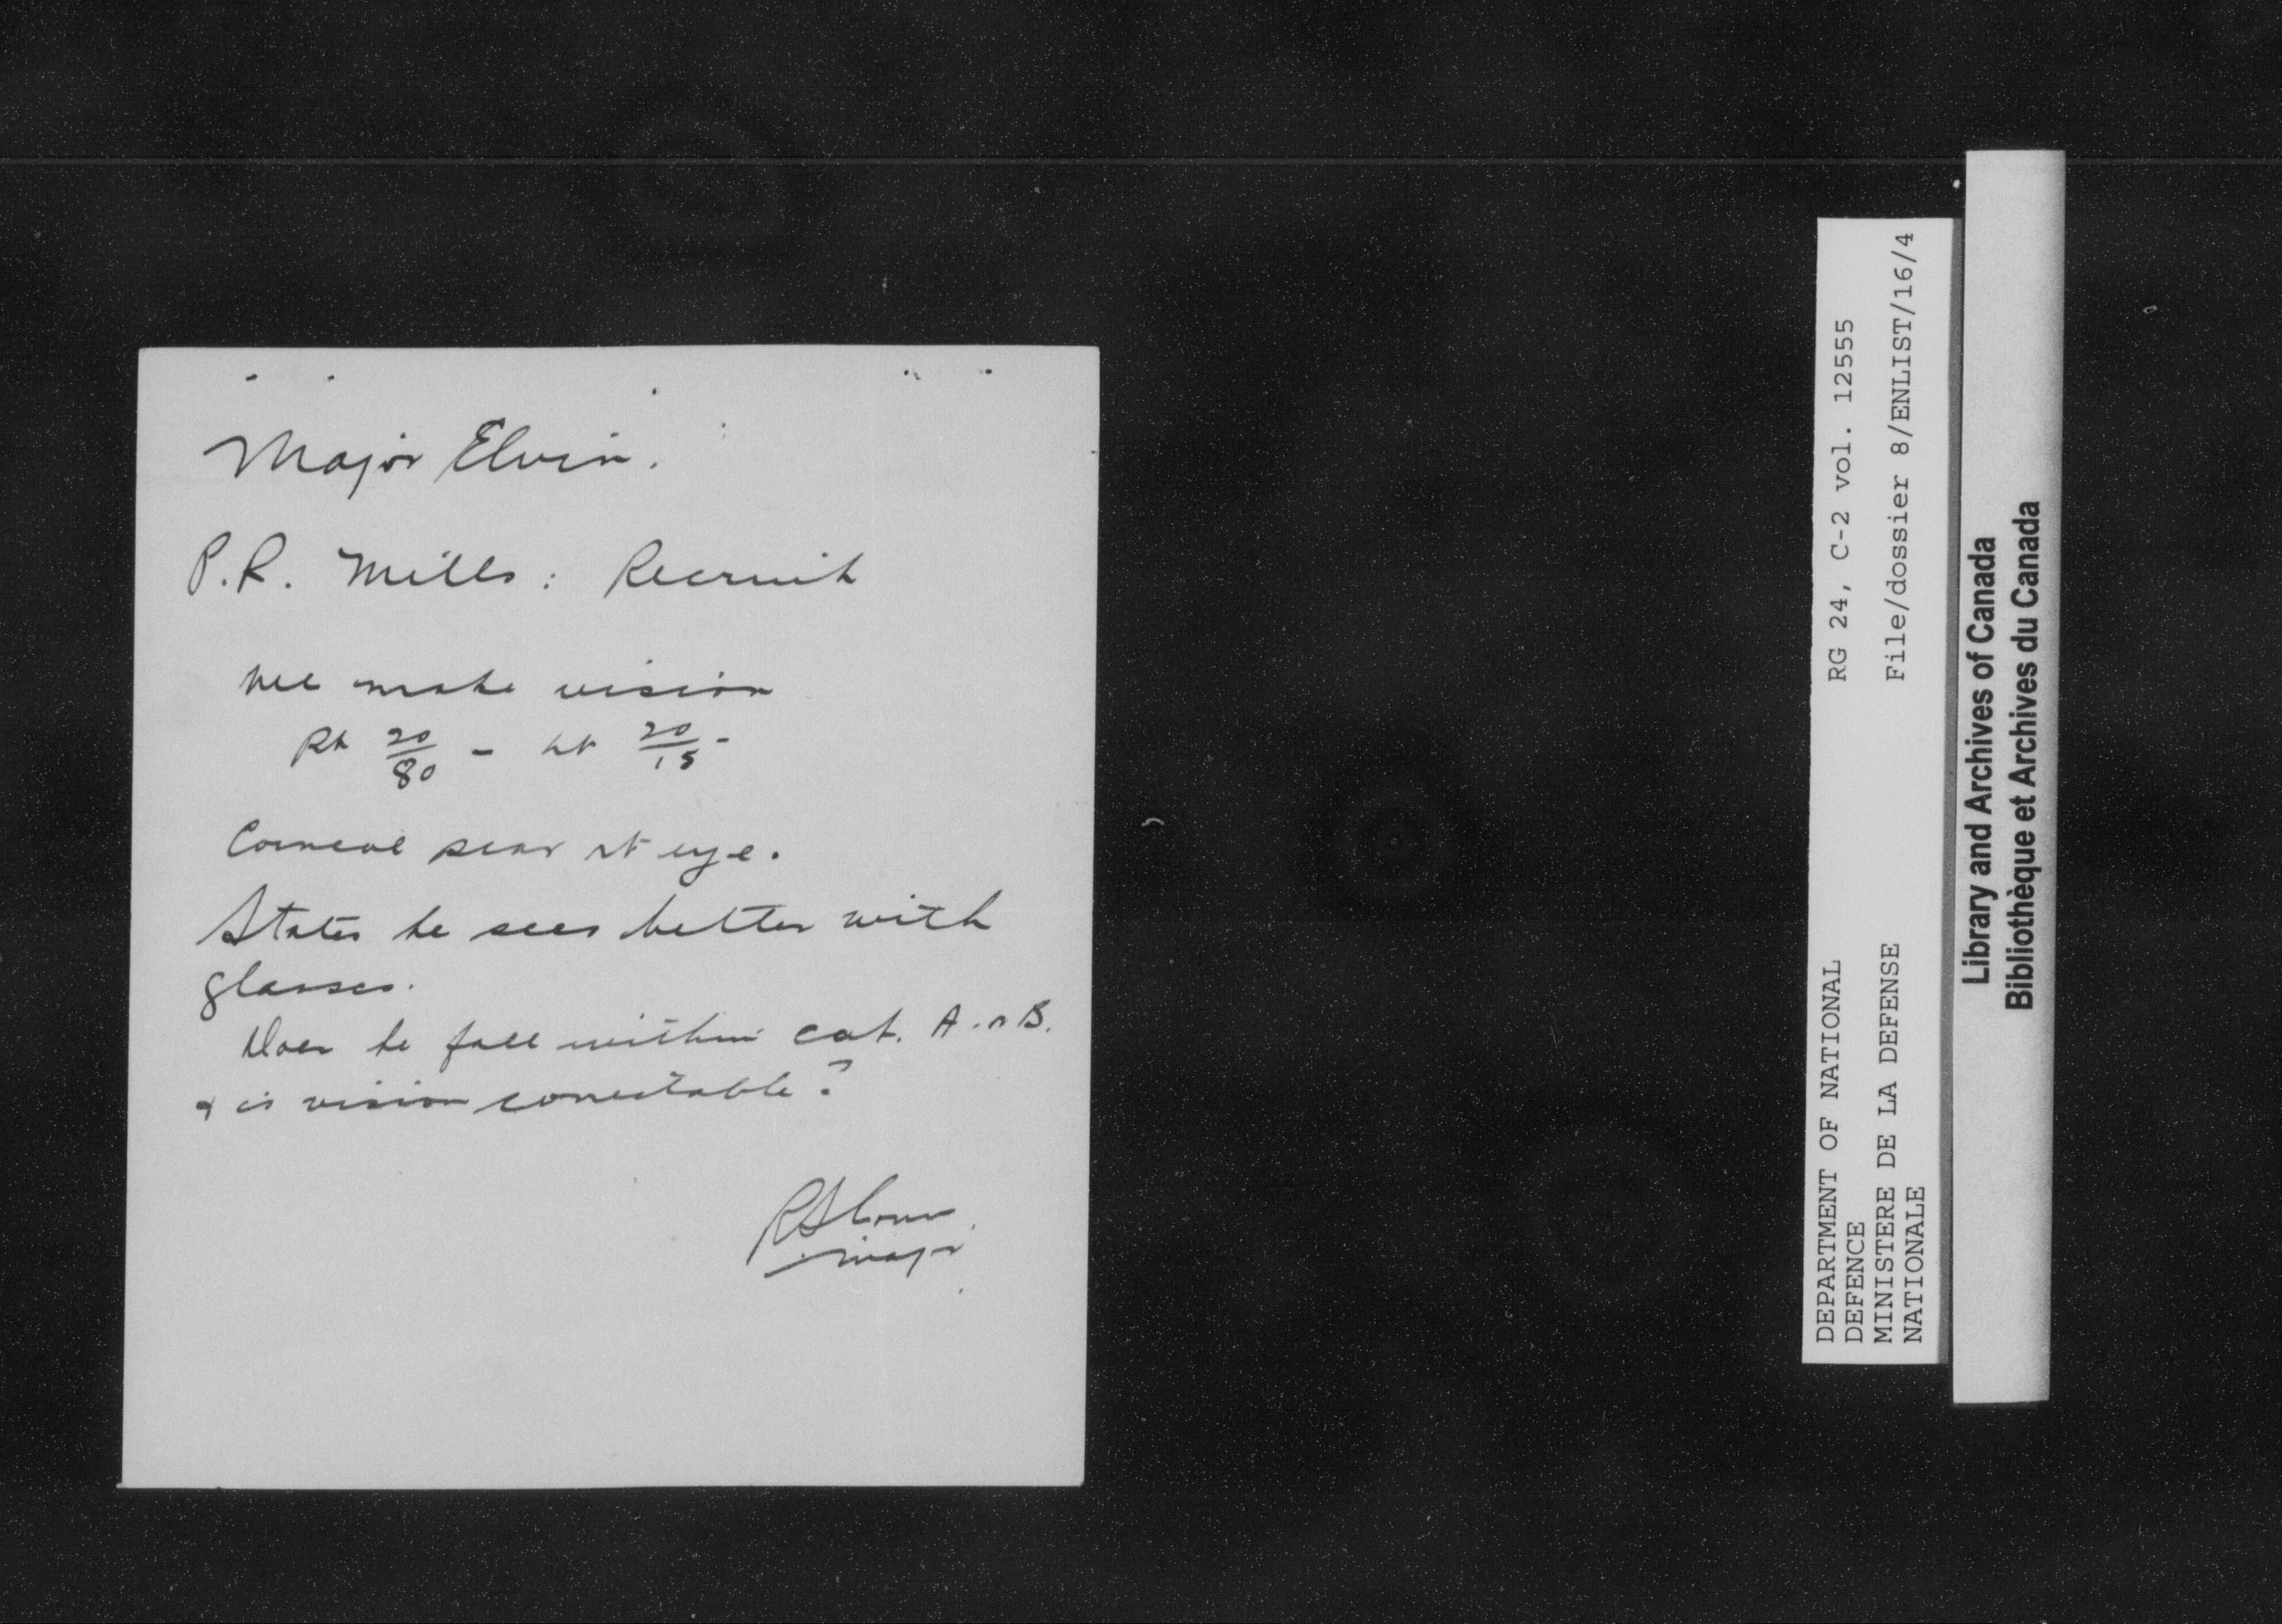 Major Elvin.
P.R. Mills: Recruit
We make vision
Rt 20/80 - Lt 20/15 -
Corneal scar rt eye.
States he sees better with
glasses.
Does he fall within cat. A. or B.
& is vision correctable?
Major
RG 24, C-2 vol. 12555
File/dossier 8/ENLIST/16/4
DEPARTMENT OF NATIONAL
DEFENCE
MINISTERE DE LA DEFENSE
NATIONALE
Library and Archives of Canada
Bibliothèque et Archives du Canada